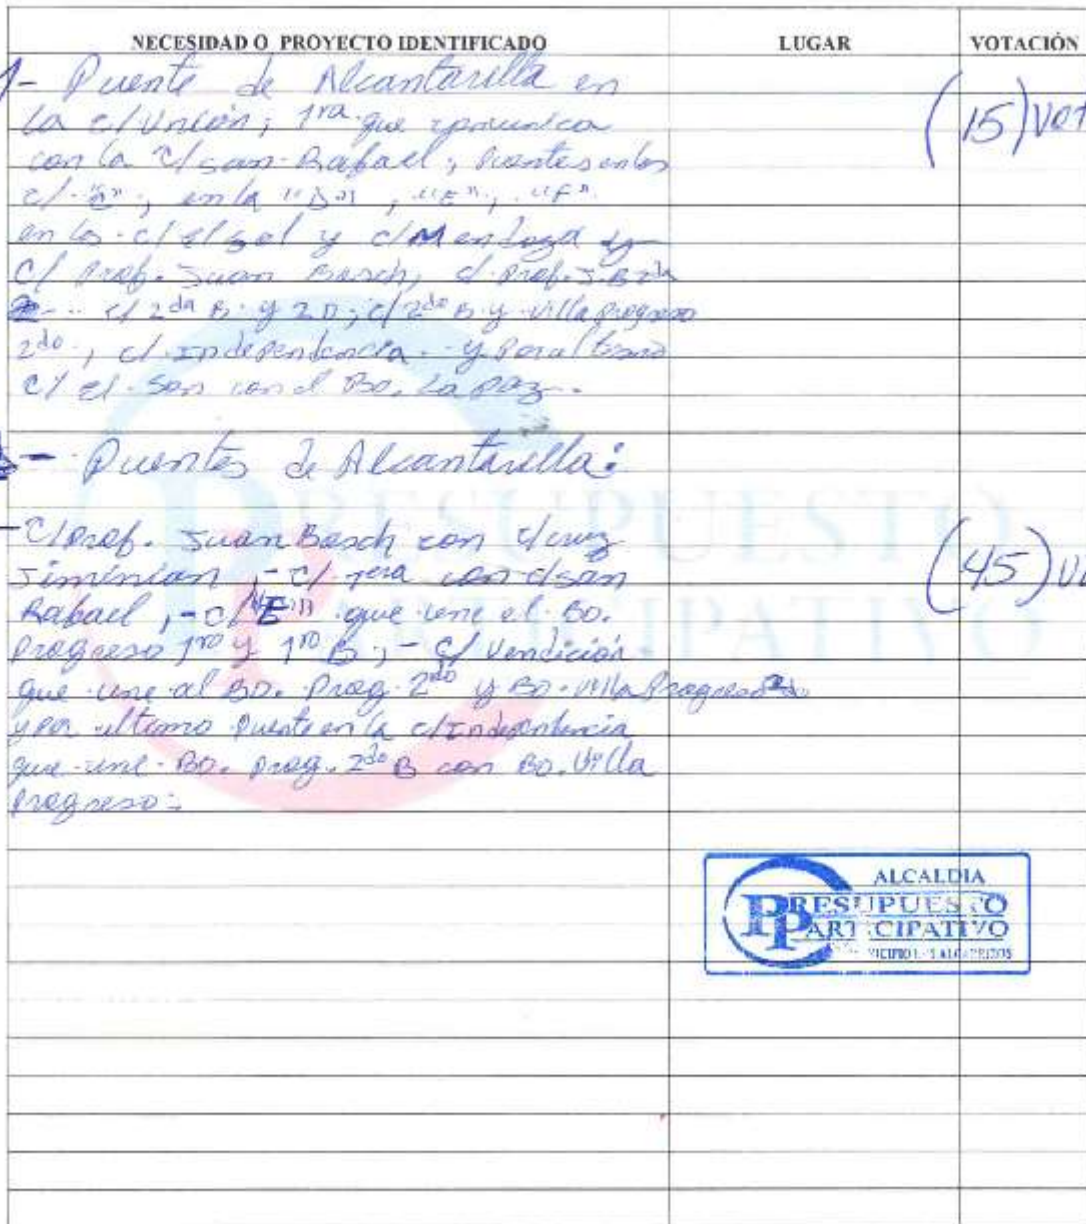 NECESIDAD O PROYECTO IDENTIFICADO LUGAR VOTACIÓN
1- Puente de Alcantarilla en
la c/ Unión; 1ra que comunica (15) Vot
con la c/ san-Rafael; Puentes en las
c/- ; en la "D", "E", "F"
en las c/ el sol y c/ Mendoza y
C/ Prof. Juan Bosch, c/ Prof. J.B 2da
c/ 2da B. y 2D; c/ 2do B. y Villa Progreso
2do, c/ Independencia - y Para
c/ el Son con el Bo. La paz.
- Puentes de Alcantarilla:
PRESUPUESTO
PARTICIPATIVO
- C/ Prof. Juan Bosch con c/ cruz
Jiminian, - c/ 1era con c/ san (45) Vo
Rafael, - c/ "E" que une el Bo.
Progreso 1ro y 1ro B; - c/ Vendición
que une al Bo. Prog. 2do y Bo. Villa Progreso 2do
y por ultimo Puente en la c/ Independencia
que une Bo. prog. 2do B con Bo. Villa
Progreso:
ALCALDIA
PRESUPUESTO
PARTICIPATIVO